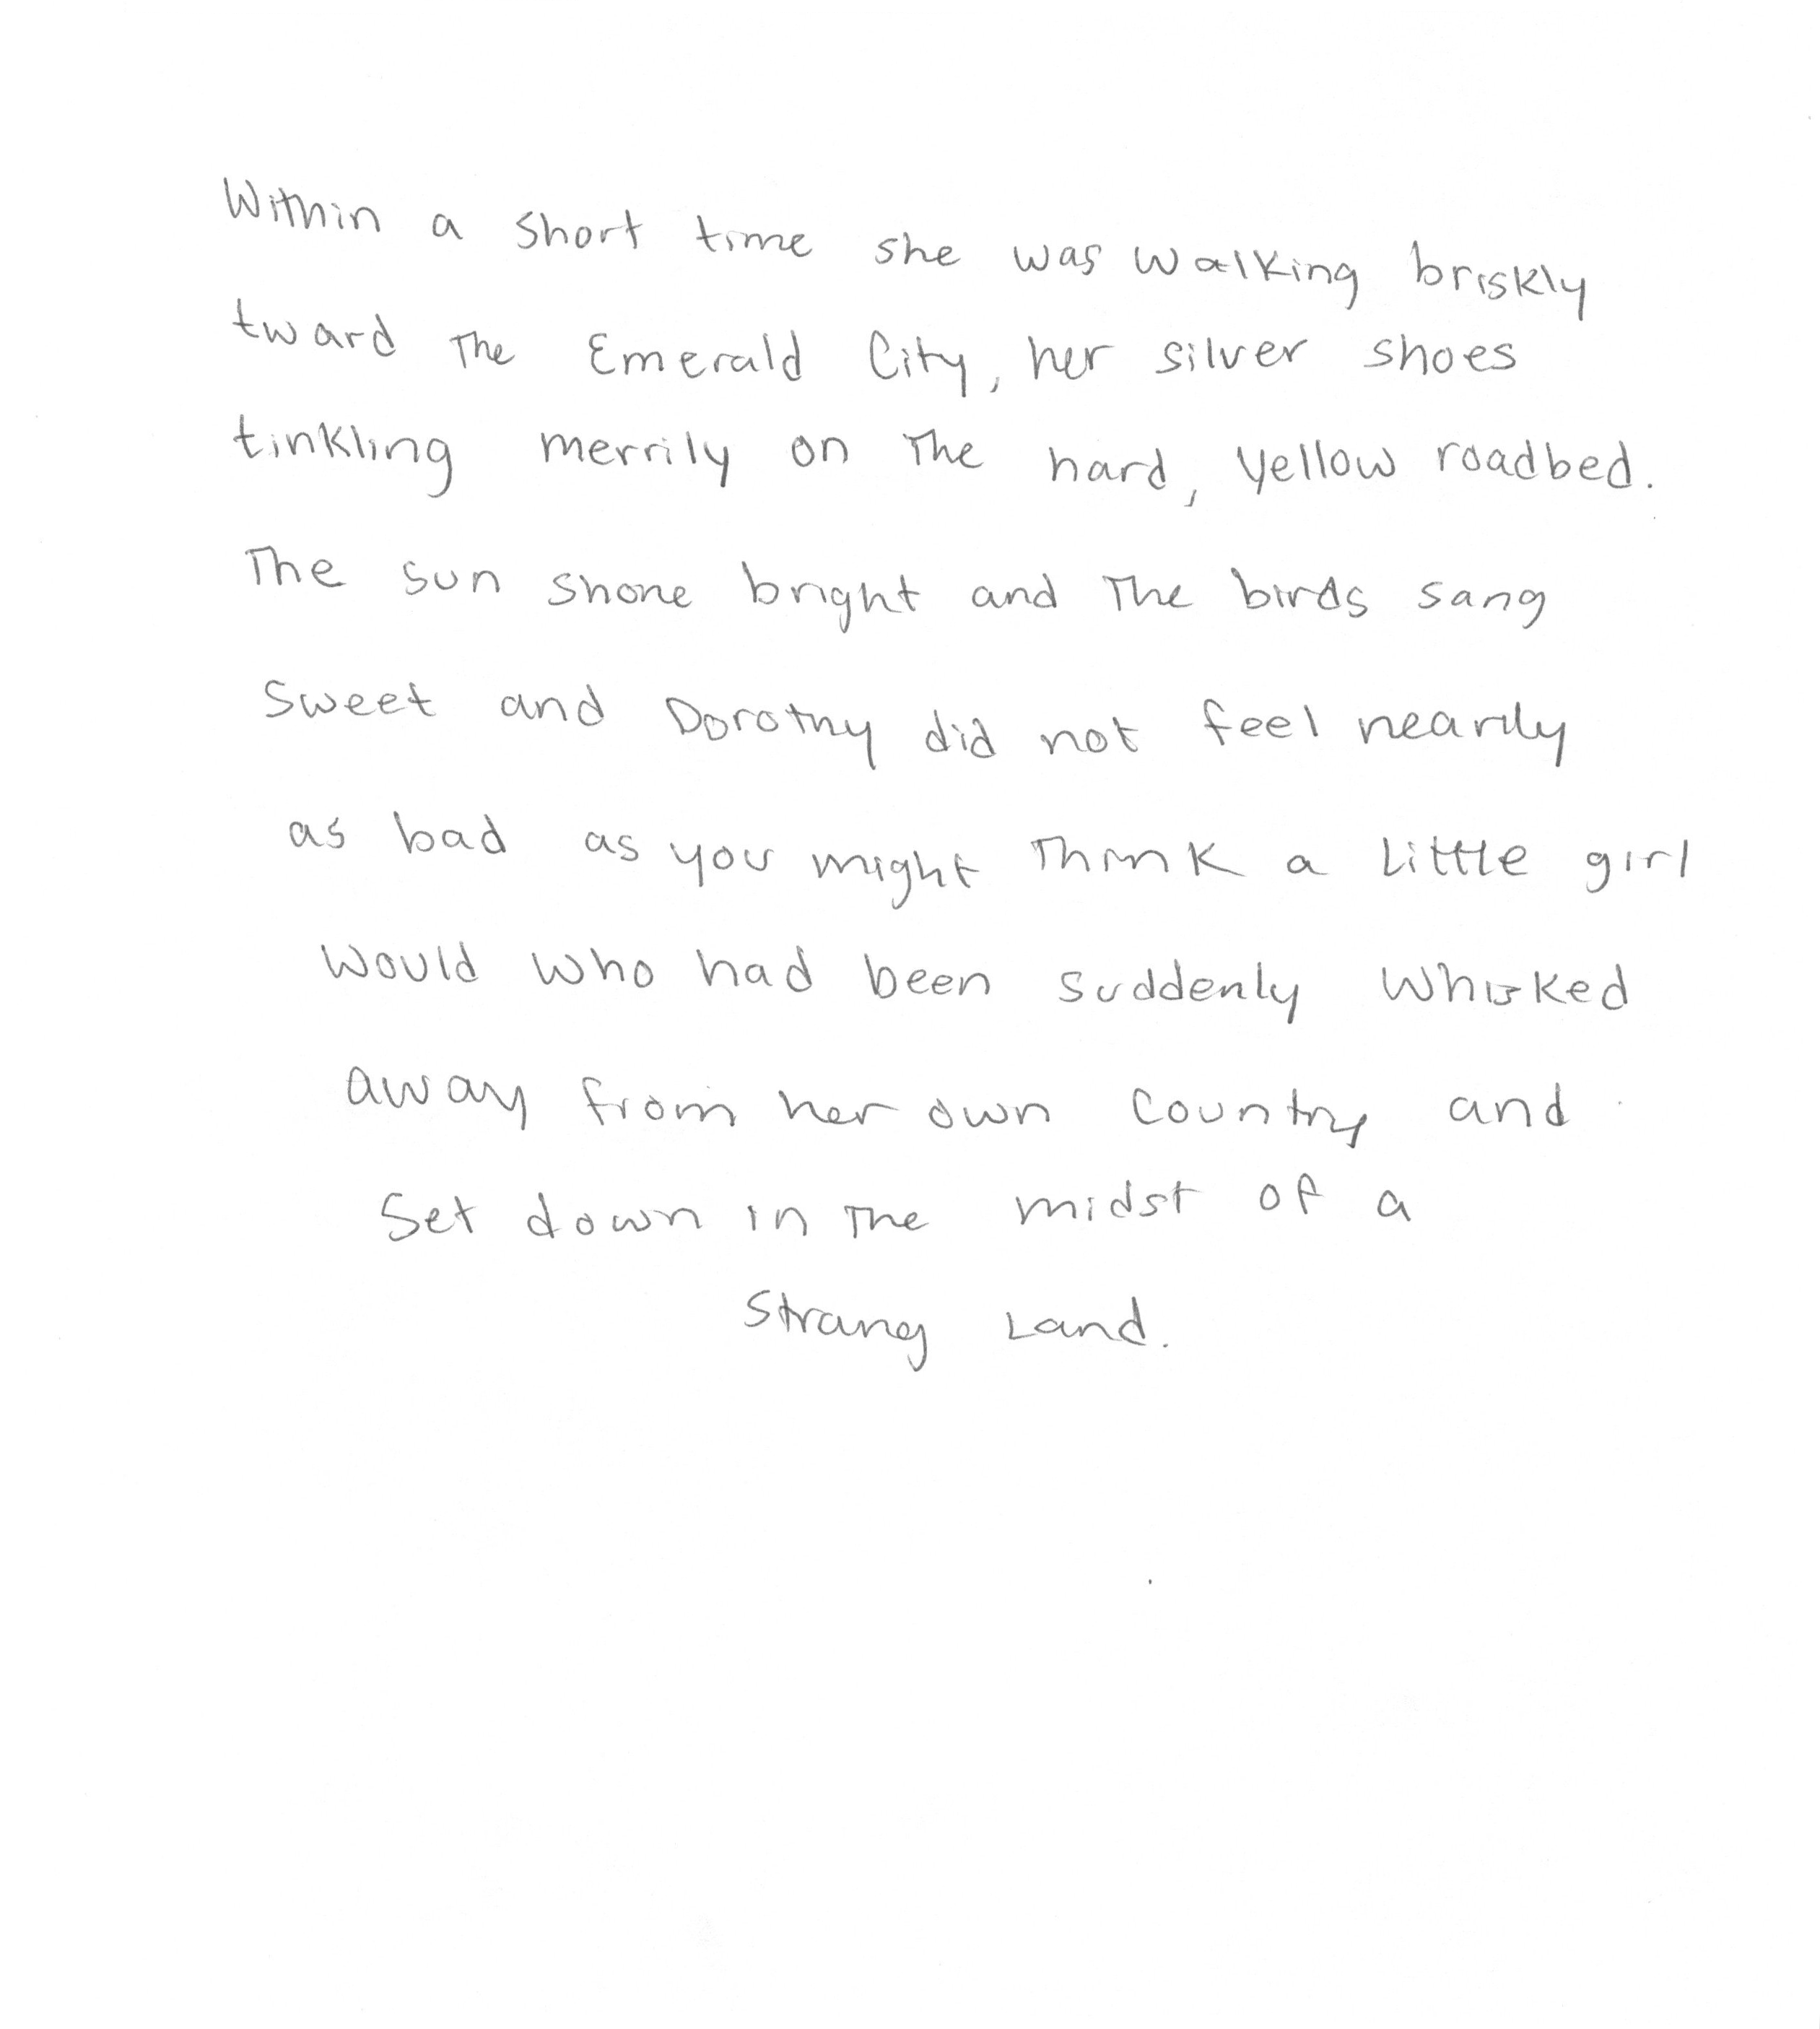 Within a short time she was walking briskly
tward The Emerald City, her silver shoes
tinkling merrily on The hard, yellow roadbed.
The sun shone bright and The birds sang
sweet and Dorothy did not feel nearly
as bad as you might Think a Little girl
would who had been suddenly whisked
away from her own country and
Set down in The midst of a
Strang Land.